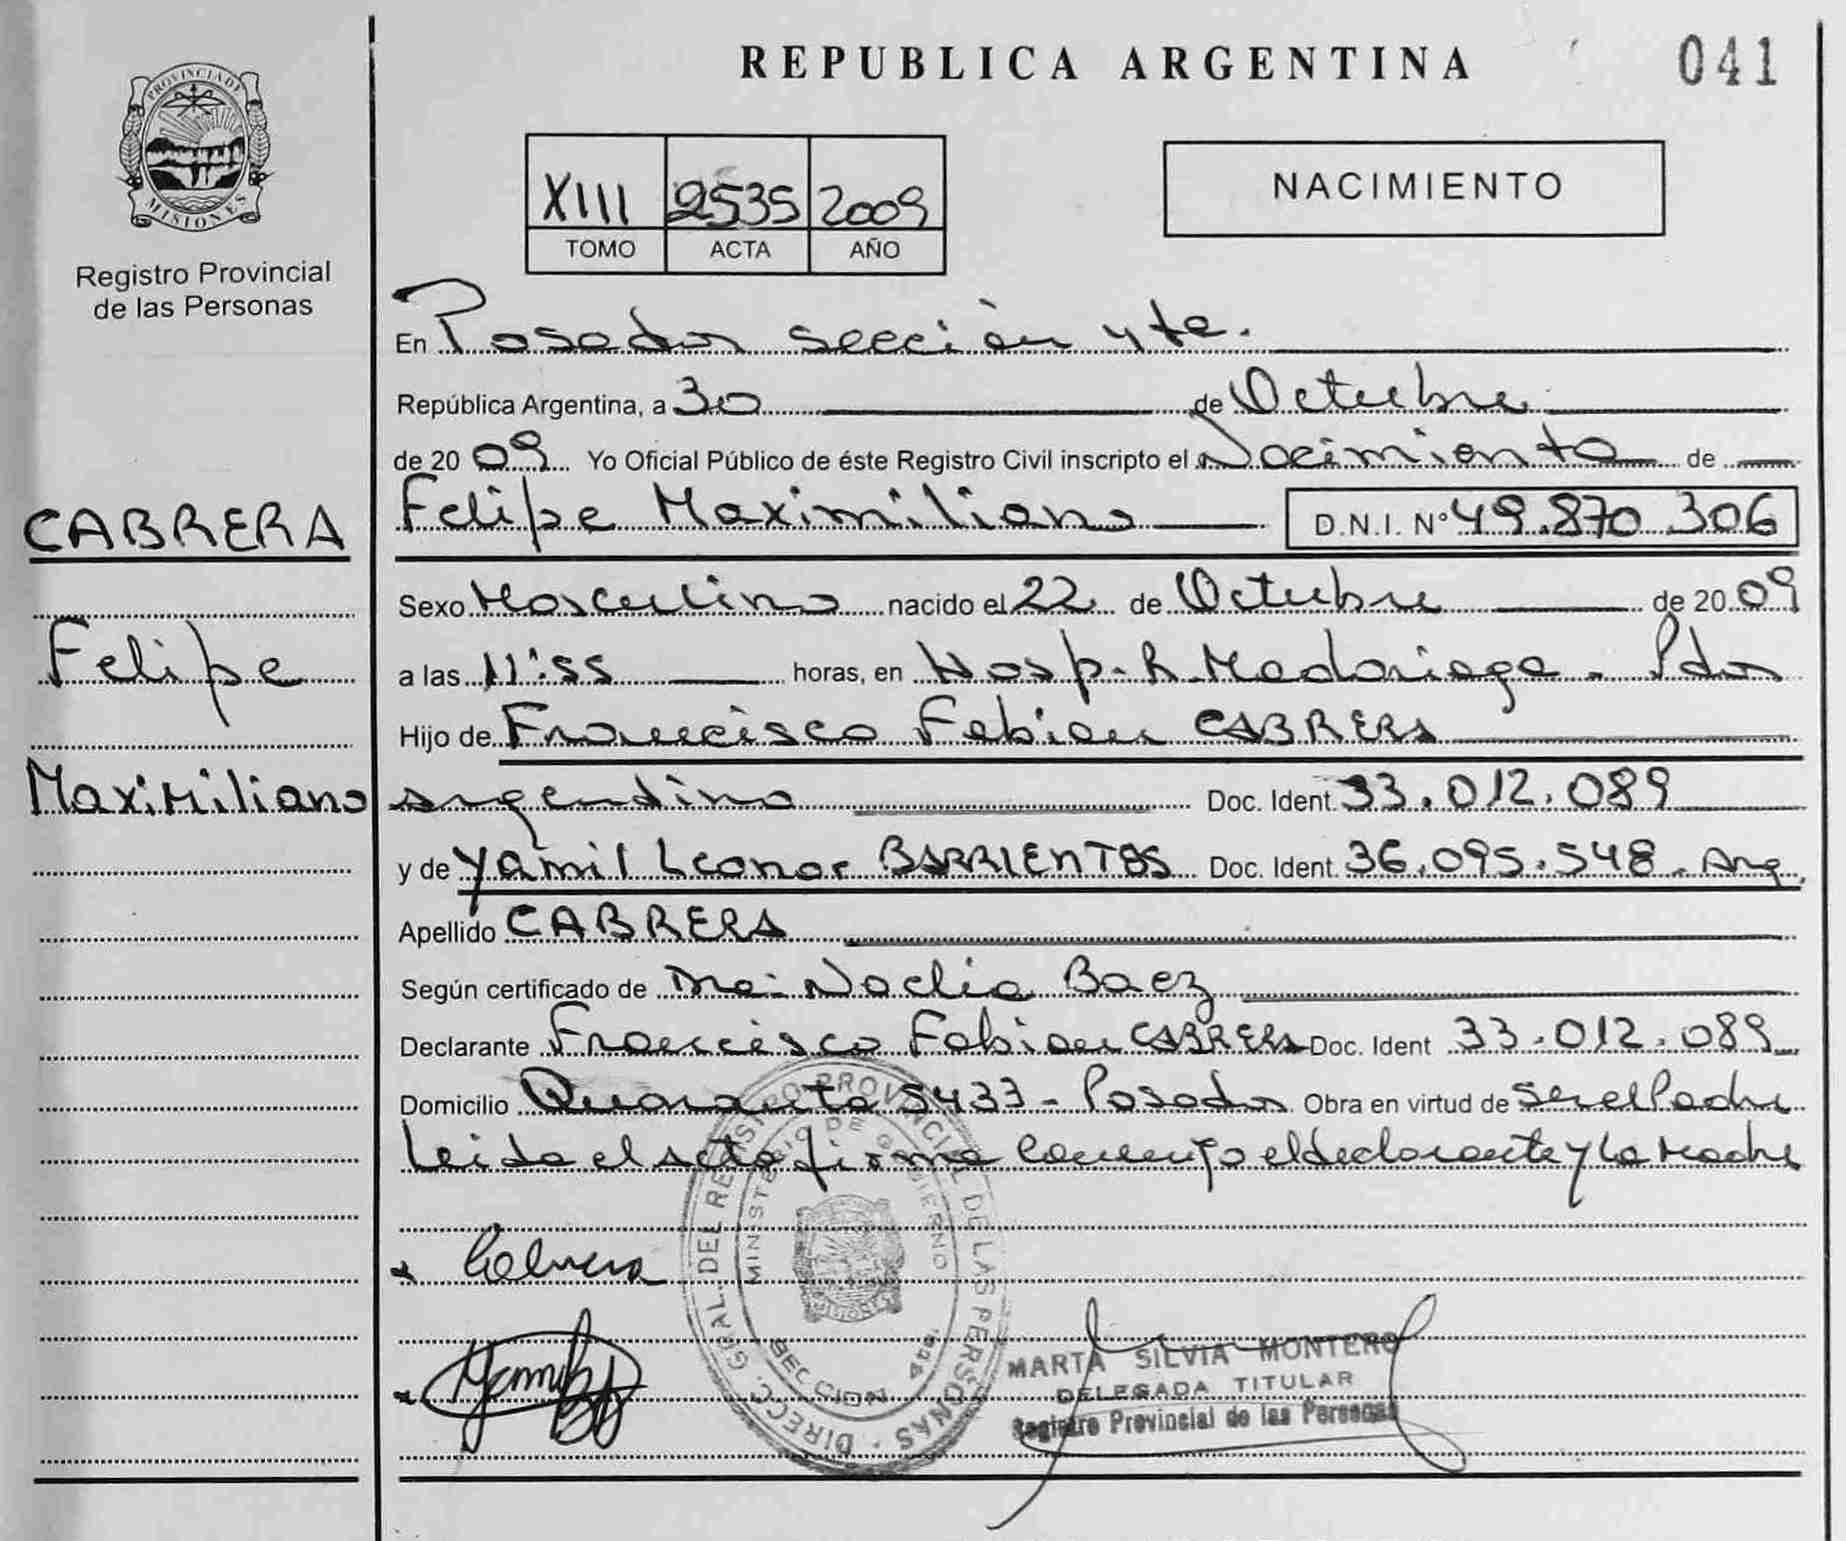 REPUBLICA ARGENTINA
041
PROVINCIA DE MISIONES
Registro Provincial
de las Personas
XIII 2535 2009
TOMO ACTA AÑO
NACIMIENTO
En Posadas sección 4ta.
República Argentina, a 30 de Octubre
de 2009 Yo Oficial Público de éste Registro Civil inscripto el Nacimiento de
Felipe Maximiliano D.N.I. Nº 49.870.306
CABRERA
Felipe
Maximiliano
Sexo Masculino nacido el 22 de Octubre de 2009
a las 11:55 horas, en Hosp. R. Madariaga - Pdas
Hijo de Francisco Fabian CABRERA
argentino Doc. Ident. 33.012.089
y de Yamil Leonor BARRIENTOS Doc. Ident. 36.095.548. Arg.
Apellido CABRERA
Según certificado de Noelia Baez
Declarante Francisco Fabian CABRERA Doc. Ident 33.012.089
Domicilio 5433 - Posadas Obra en virtud de ser el Padre
Leida el acta firma conmigo el declarante y la madre
Cabrera
DIRECC. GRAL. DEL REGISTRO PROVINCIAL DE LAS PERSONAS
MINISTERIO DE GOBIERNO
SECCION
MARTA SILVIA MONTERO
DELEGADA TITULAR
Registro Provincial de las Personas